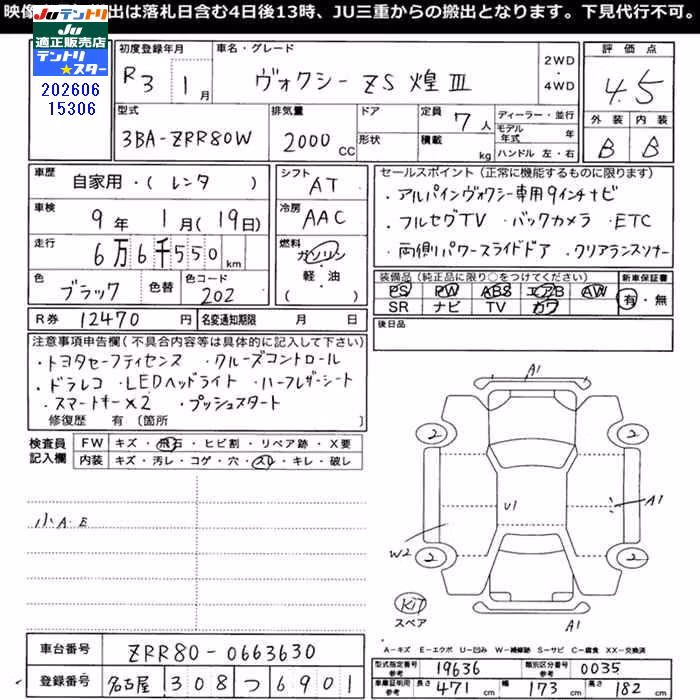 映像 出は落札日含む4日後13時、JU三重からの搬出となります。下見代行不可。
JUテントリ
JU適正販売店
テントリ
★スター
202606
15306
初度登録年月
R3 1月
車名・グレード
ヴォクシー ZS 煌Ⅲ
2WD
・
4WD
評価点
4.5
外装 内装
B B
型式
3BA-ZRR80W
排気量
2000 CC
ドア
形状
定員 7人
積載 kg
ディーラー・並行
モデル年式 年
ハンドル 左・右
車歴
自家用・(レンタ)
車検
9年 1月(19日)
走行
6万6千550km
色
ブラック
色替
色コード
202
シフト
AT
冷房
AAC
燃料
ガソリン
・
軽・油
( )
セールスポイント(正常に機能するものに限ります)
・アルパインヴォクシー専用9インチナビ
・フルセグTV ・バックカメラ ・ETC
・両側パワースライドドア ・クリアランスソナー
装備品(純正品に限り○をつけてください)
PS PW ABS エアB AW
SR ナビ TV カワ
新車保証書
有・無
R券 12470円
名変通知期限 月 日
後日品
注意事項申告欄(不具合内容等は具体的に記入して下さい)
・トヨタセーフティセンス ・クルーズコントロール
・ドラレコ ・LEDヘッドライト ・ハーフレザーシート
・スマートキー×2 ・プッシュスタート
修復歴 有〔箇所 〕
検査員
記入欄
FW キズ・飛石・ヒビ割・リペア跡・X要
内装 キズ・汚レ・コゲ・穴・スレ・キレ・破レ
小A・E
A1
2 2
U1
A1
W2
2 2
Kit
スペア
A1
A-キズ E-エクボ U-凹み W-補修跡 S-サビ C-腐食 XX-交換済
車台番号 ZRR80-0663630
登録番号 名古屋 308 つ 6901
型式指定番号 参考 19636
類別区分番号 参考 0035
車庫証明用 参考 長さ 471cm 幅 173cm 高さ 182cm